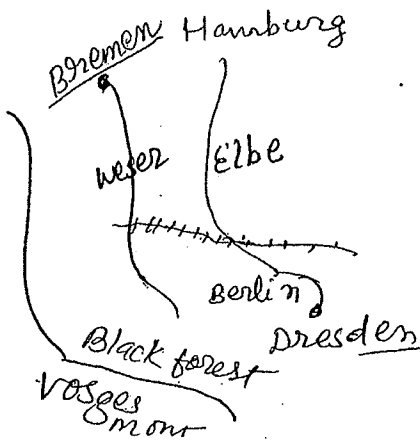 Bremen Hamburg
Weser Elbe
Berlin
Dresden
Black forest
Vosges
mont